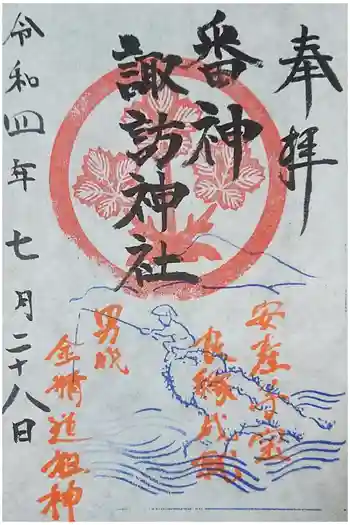 奉拝
番神
諏訪神社
令和四年七月二十八日
安産子宝
良縁成就
男岐
金精道祖神